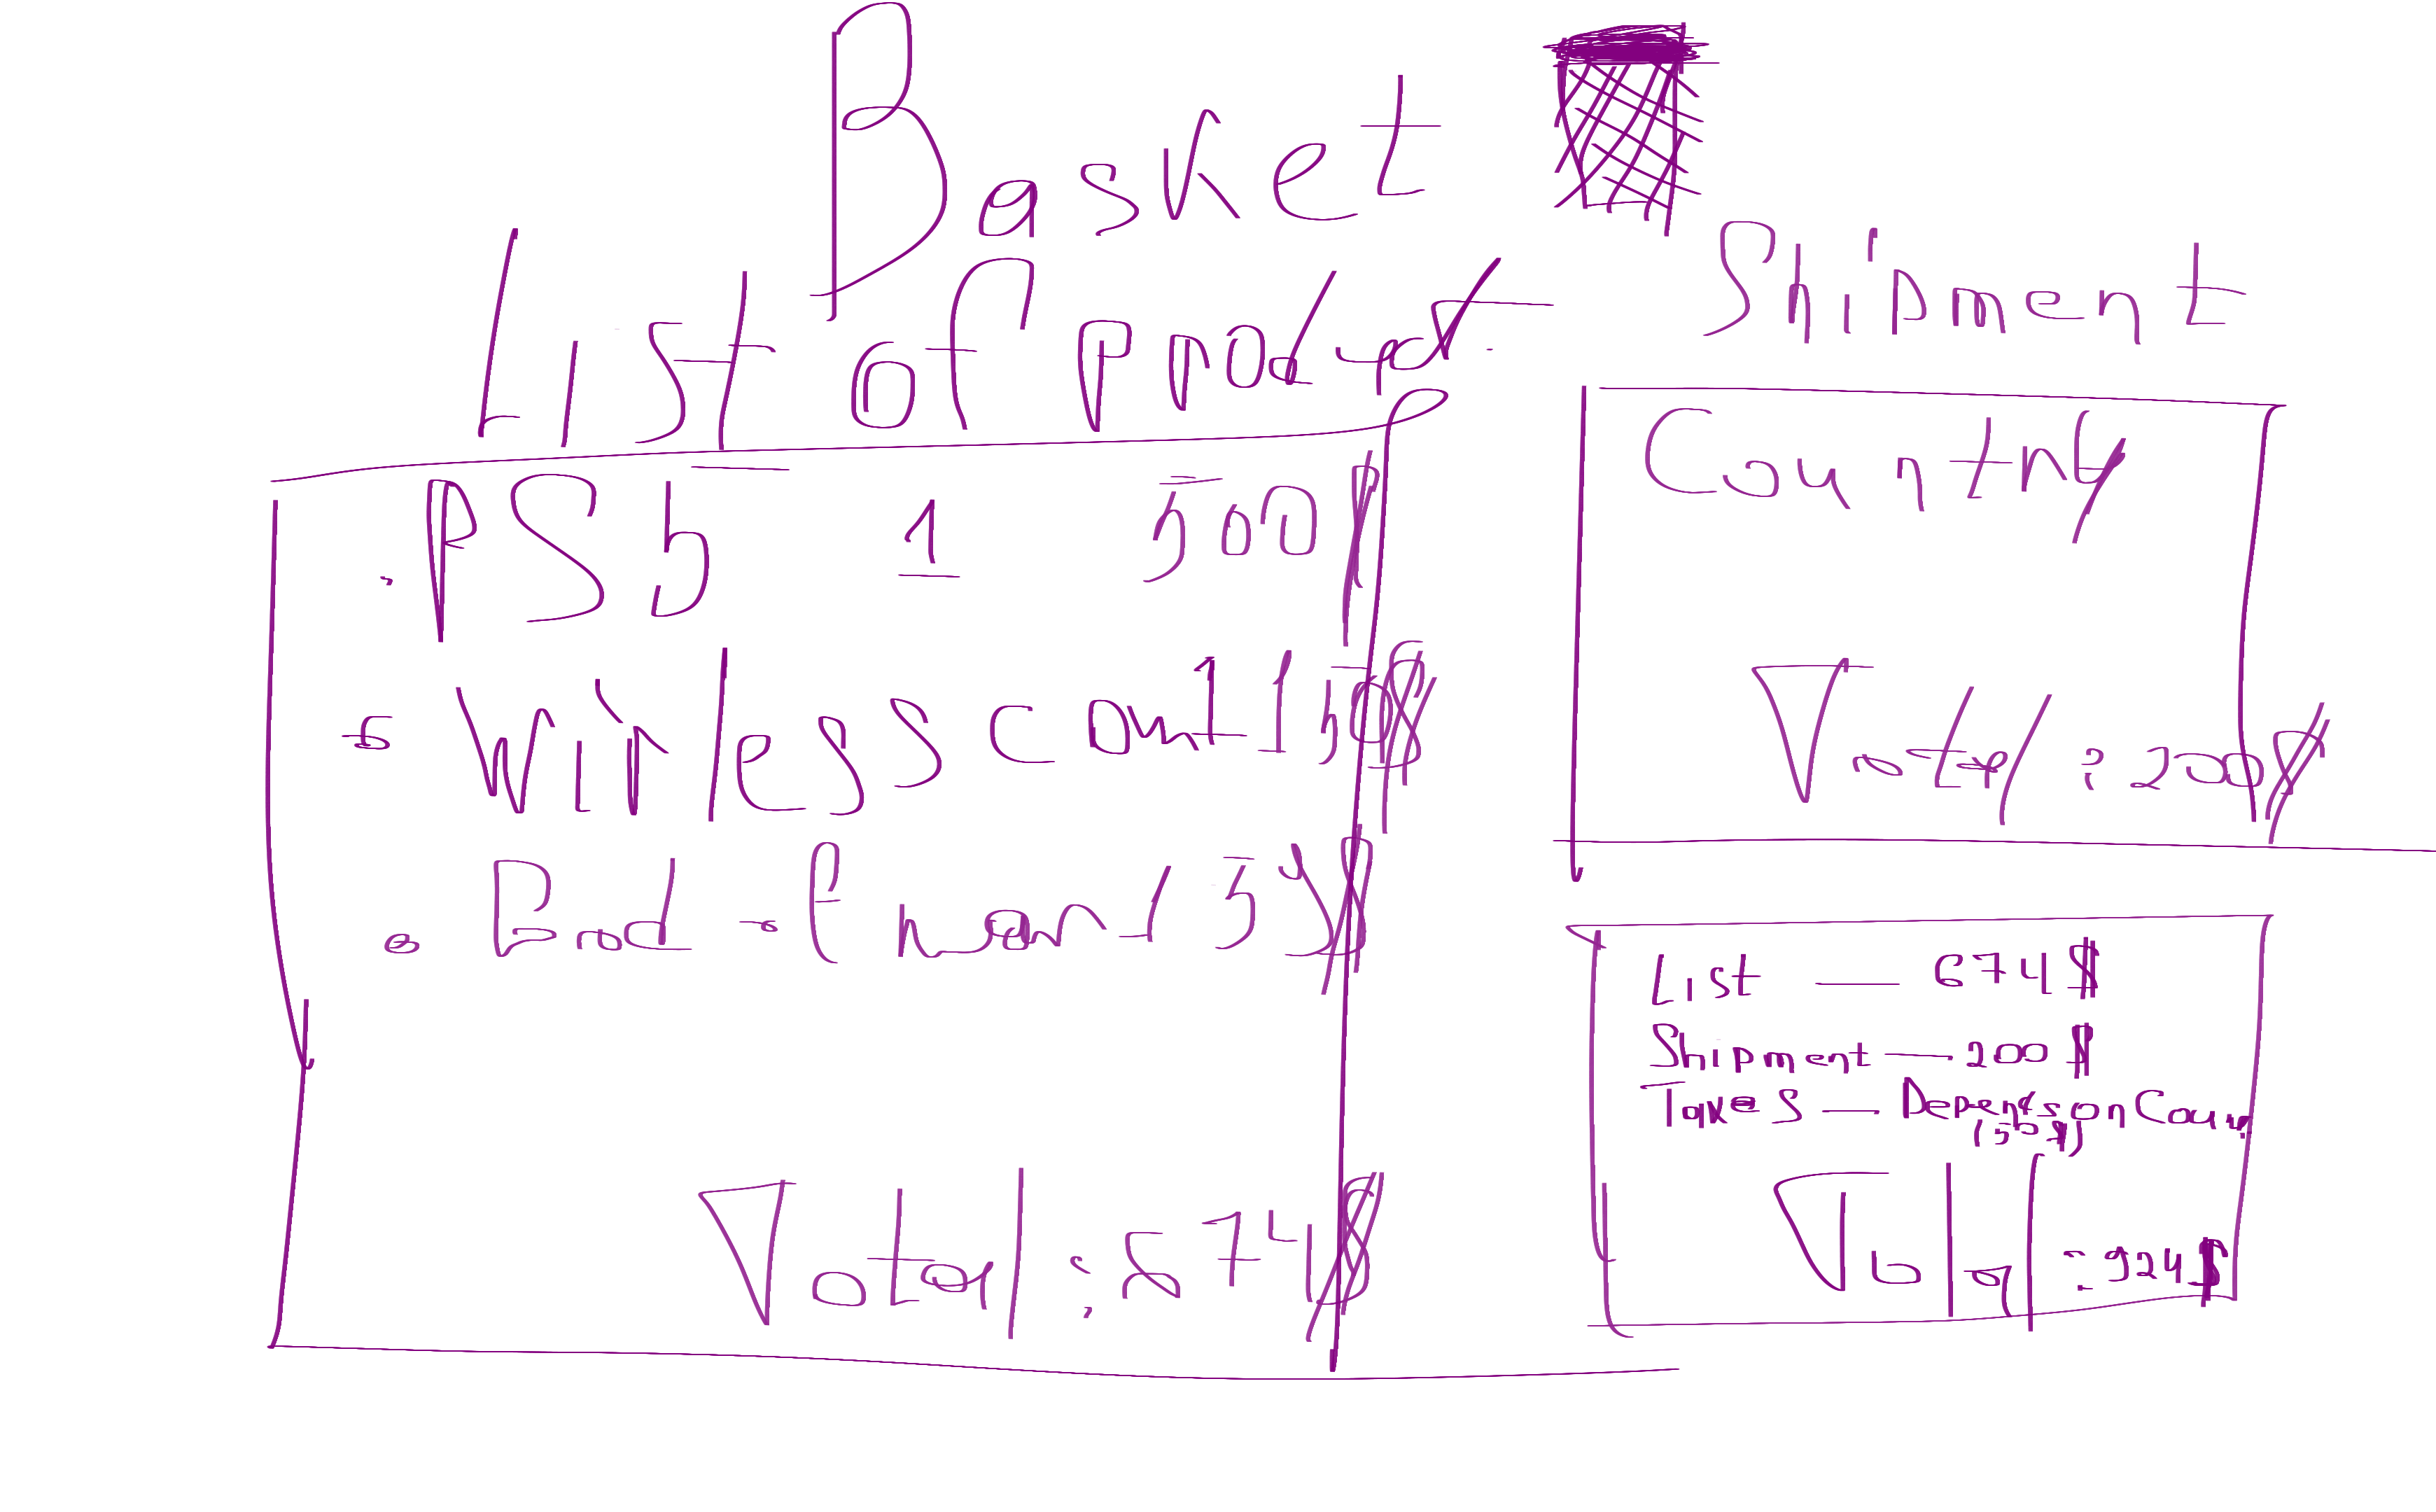 Basket
List of Product
. PS5 1 500$
Wirless cont 1 150$
God of 1 
Total : 674$
Shipment
Country
Total : 200$
List — 674$
Shipment — 200$
Taxes — Depends on Coun
(50$)
Total : 924$